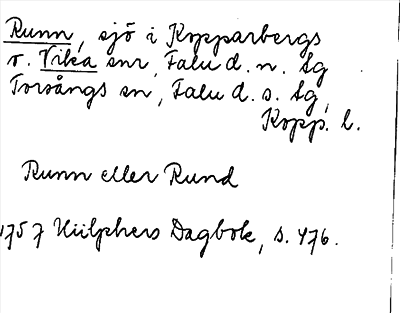 Runn, sjö i Kopparbergs
o. Vika snr, Falu d. n. tg
Torsångs sn, Falu d. s. tg,
Kopp. l.
Runn eller Rund
1757 Hülphers Dagbok, s. 476.